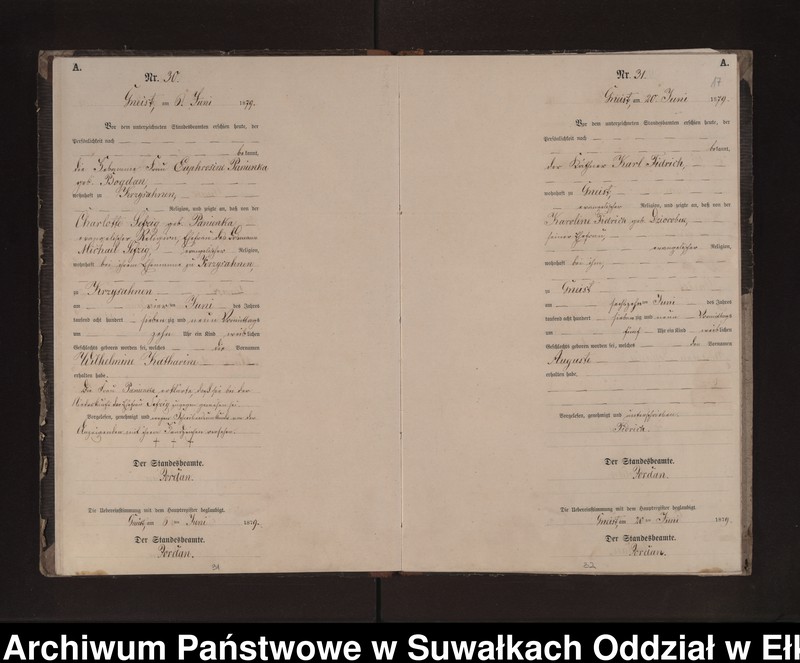 A.
Nr. 30.
Gneist, am 6. Juni 1879.
Vor dem unterzeichneten Standesbeamten erschien heute, der
Persönlichkeit nach
bekannt,
die Hebamme Frau Euphrosine Panunka
geb. Bogdan,
wohnhaft zu Krzysahnen,
Religion, und zeigte an, daß von der
Charlotte Sofzig geb. Panunka
evangelischer Religion, Ehefrau des
Michael Sofzig, evangelischer Religion,
wohnhaft bei ihrem Ehemanne zu Krzysahnen
zu Krzysahnen
am vierten Juni des Jahres
tausend acht hundert siebenzig und neun Vormittags
um zehn Uhr ein Kind weiblichen
Geschlechts geboren worden sei, welches die Vornamen
Wilhelmine Katharine
erhalten habe.
Die Frau Panunka erklärte, daß sie bei der
Niederkunft der Sofzig zugegen gewesen sei
Vorgelesen, genehmigt und wegen Schreibensunkunde von der
Anzeigenden mit ihrem Handzeichen versehen.
+ + +
Der Standesbeamte.
Jordan.
Die Uebereinstimmung mit dem Hauptregister beglaubigt.
Gneist, am 6ten Juni 1879.
Der Standesbeamte.
Jordan.
31
A.
87
Nr. 31.
Gneist, am 20. Juni 1879.
Vor dem unterzeichneten Standesbeamten erschien heute, der
Persönlichkeit nach
bekannt,
der Käthner Karl Fidrich,
wohnhaft zu Gneist,
evangelischer Religion, und zeigte an, daß von der
Karoline Fidrich geb.
seiner Ehefrau,
evangelischer Religion,
wohnhaft bei ihm,
zu Gneist
am sechszehnten Juni des Jahres
tausend acht hundert siebenzig und neun Vormittags
um fünf Uhr ein Kind weiblichen
Geschlechts geboren worden sei, welches den Vornamen
Auguste
erhalten habe.
Vorgelesen, genehmigt und unterschrieben.
Fidrich.
Der Standesbeamte.
Jordan.
Die Uebereinstimmung mit dem Hauptregister beglaubigt.
Gneist, am 20ten Juni 1879.
Der Standesbeamte.
Jordan.
32
Archiwum Państwowe w Suwałkach Oddział w Ełk